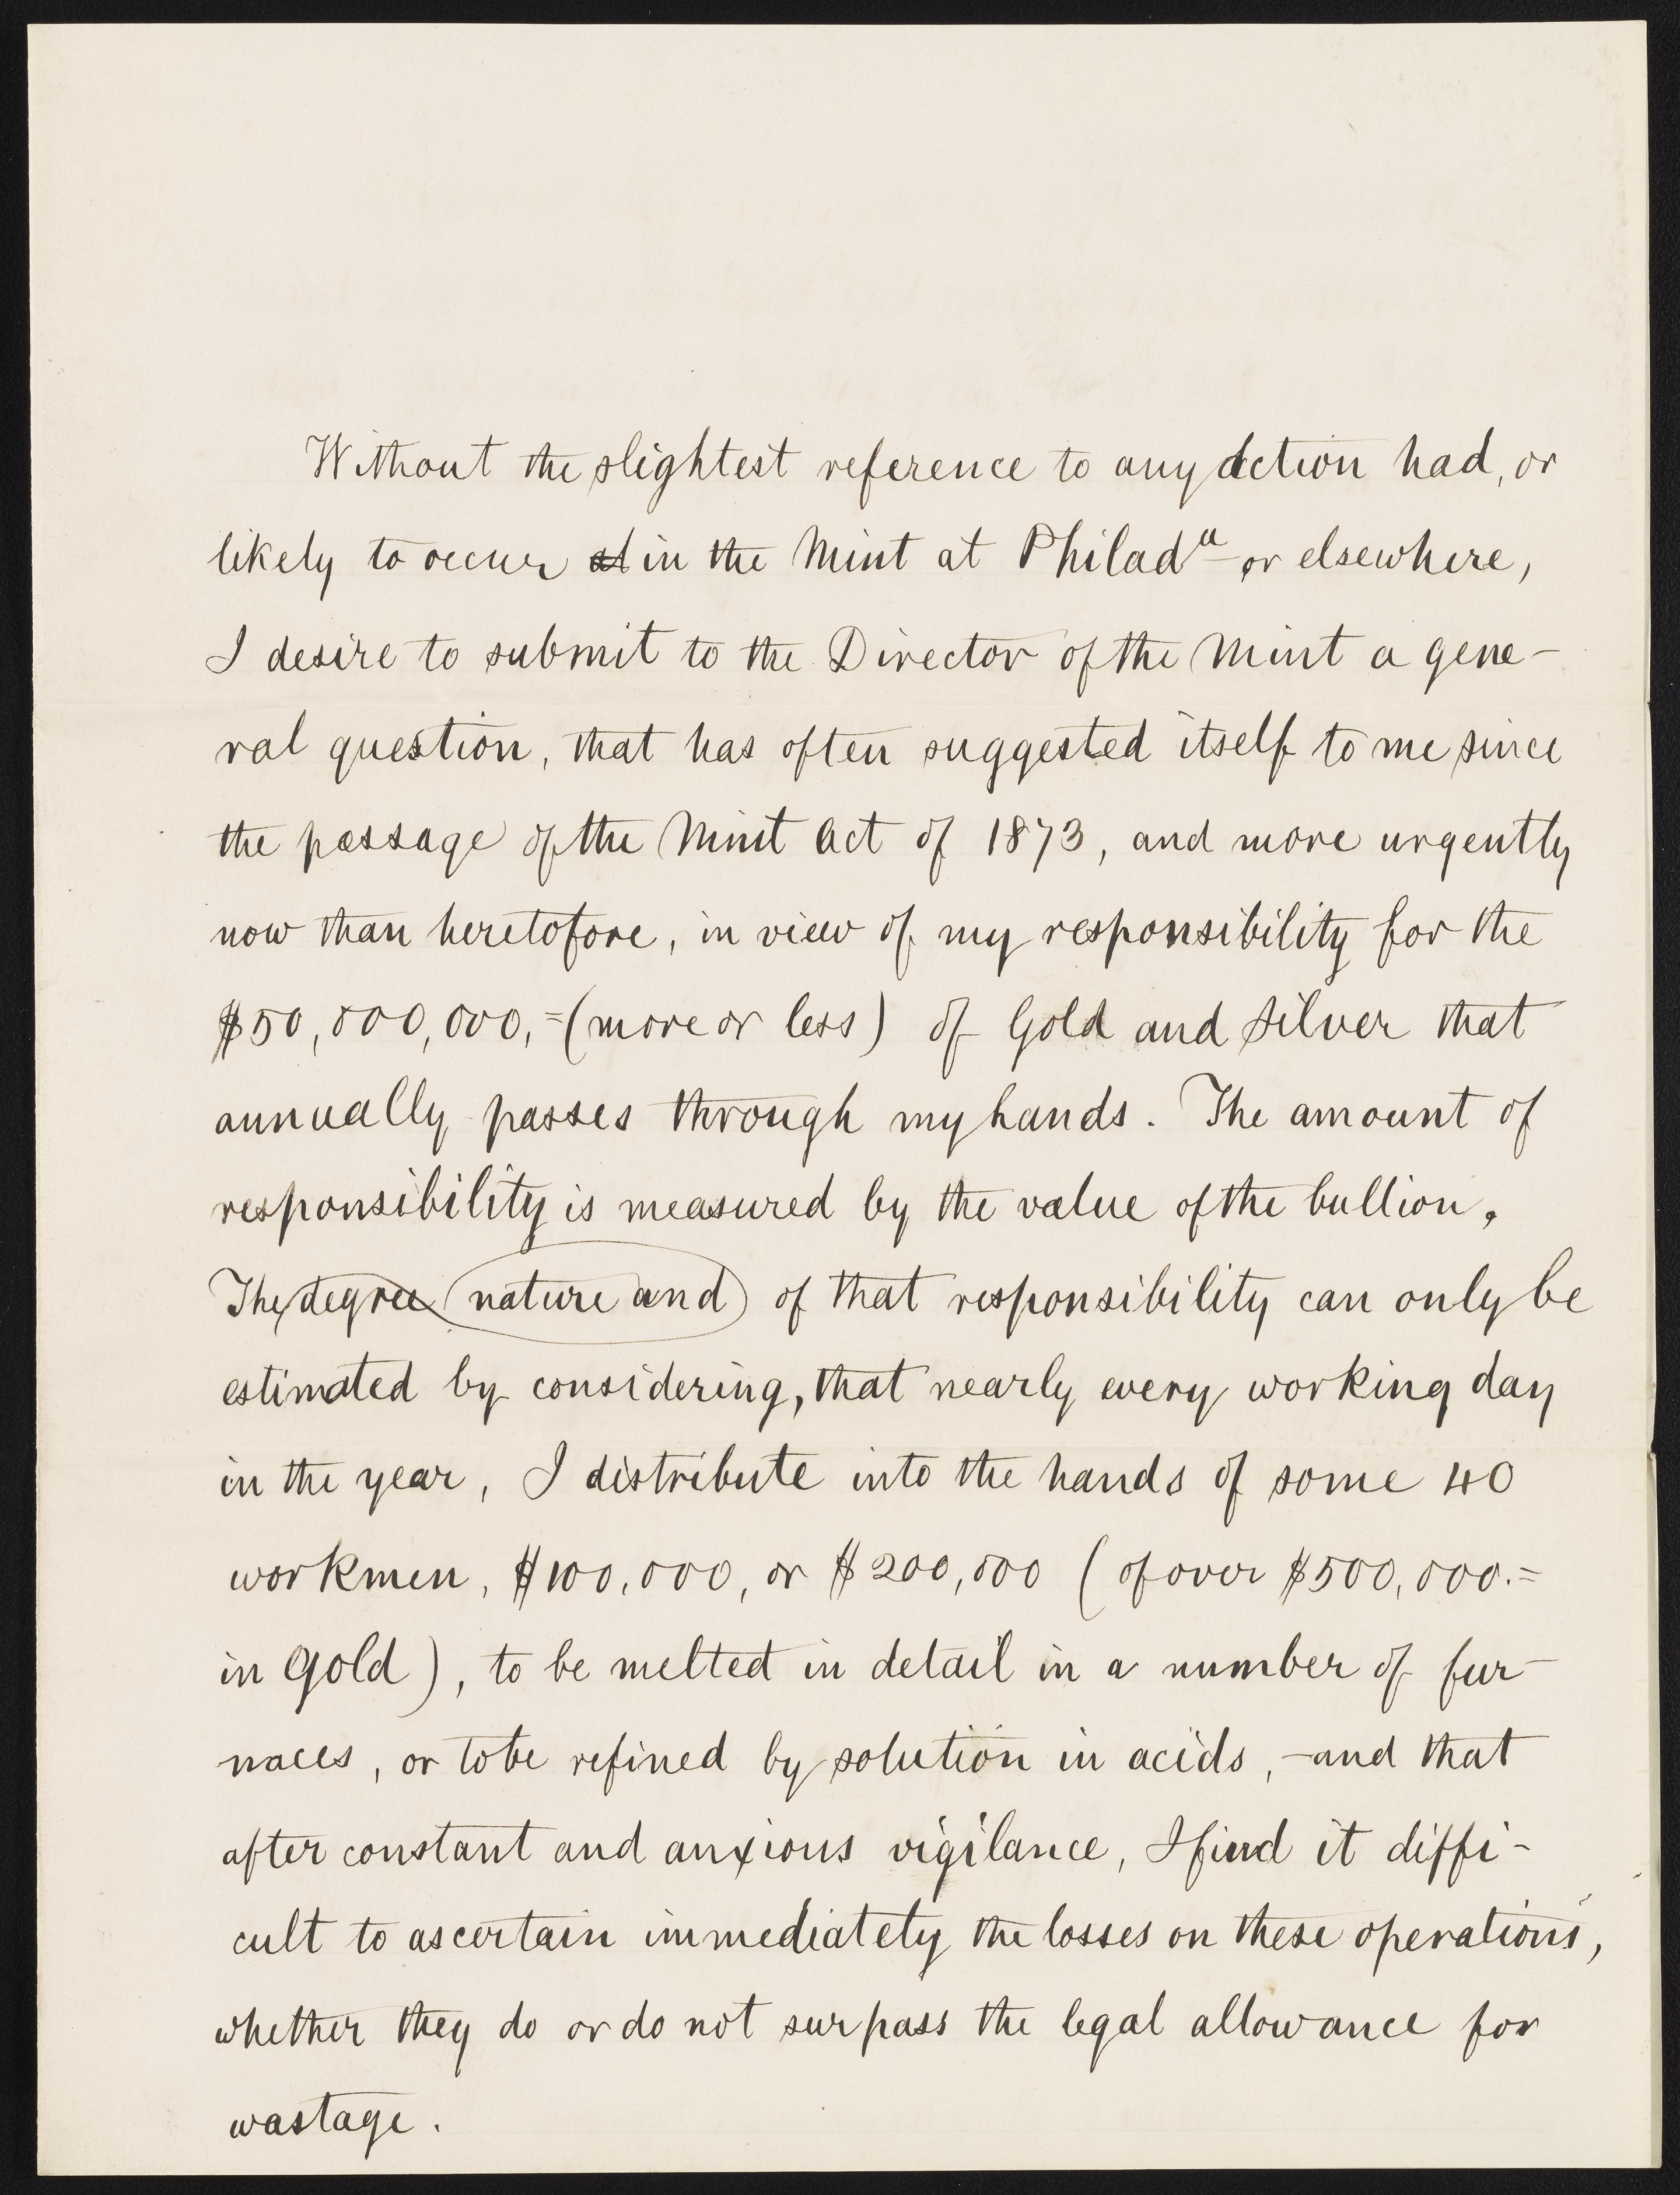 Without the slightest reference to any action had, or
likely to occur at in the Mint at Philadª or elsewhere,
I desire to submit to the Director of the Mint a gene-
ral question, that has often suggested itself to me since
the passage of the Mint Act of 1873, and more urgently
now than heretofore, in view of my responsibility for the
$50,000,000,= (more or less) of Gold and Silver that
annually passes through my hands. The amount of
responsibility is measured by the value of the bullion.
The degree nature and of that responsibility can only be
estimated by considering, that nearly every working day
in the year, I distribute into the hands of some 40
workmen, $100,000, or $200,000 (of over $500,000.=
in Gold), to be melted in detail in a number of fur-
naces, or to be refined by solution in acids, -and that
after constant and anxious vigilance, I find it diffi-
cult to ascertain immediately the losses on these operations,
whether they do or do not surpass the legal allowance for
wastage.